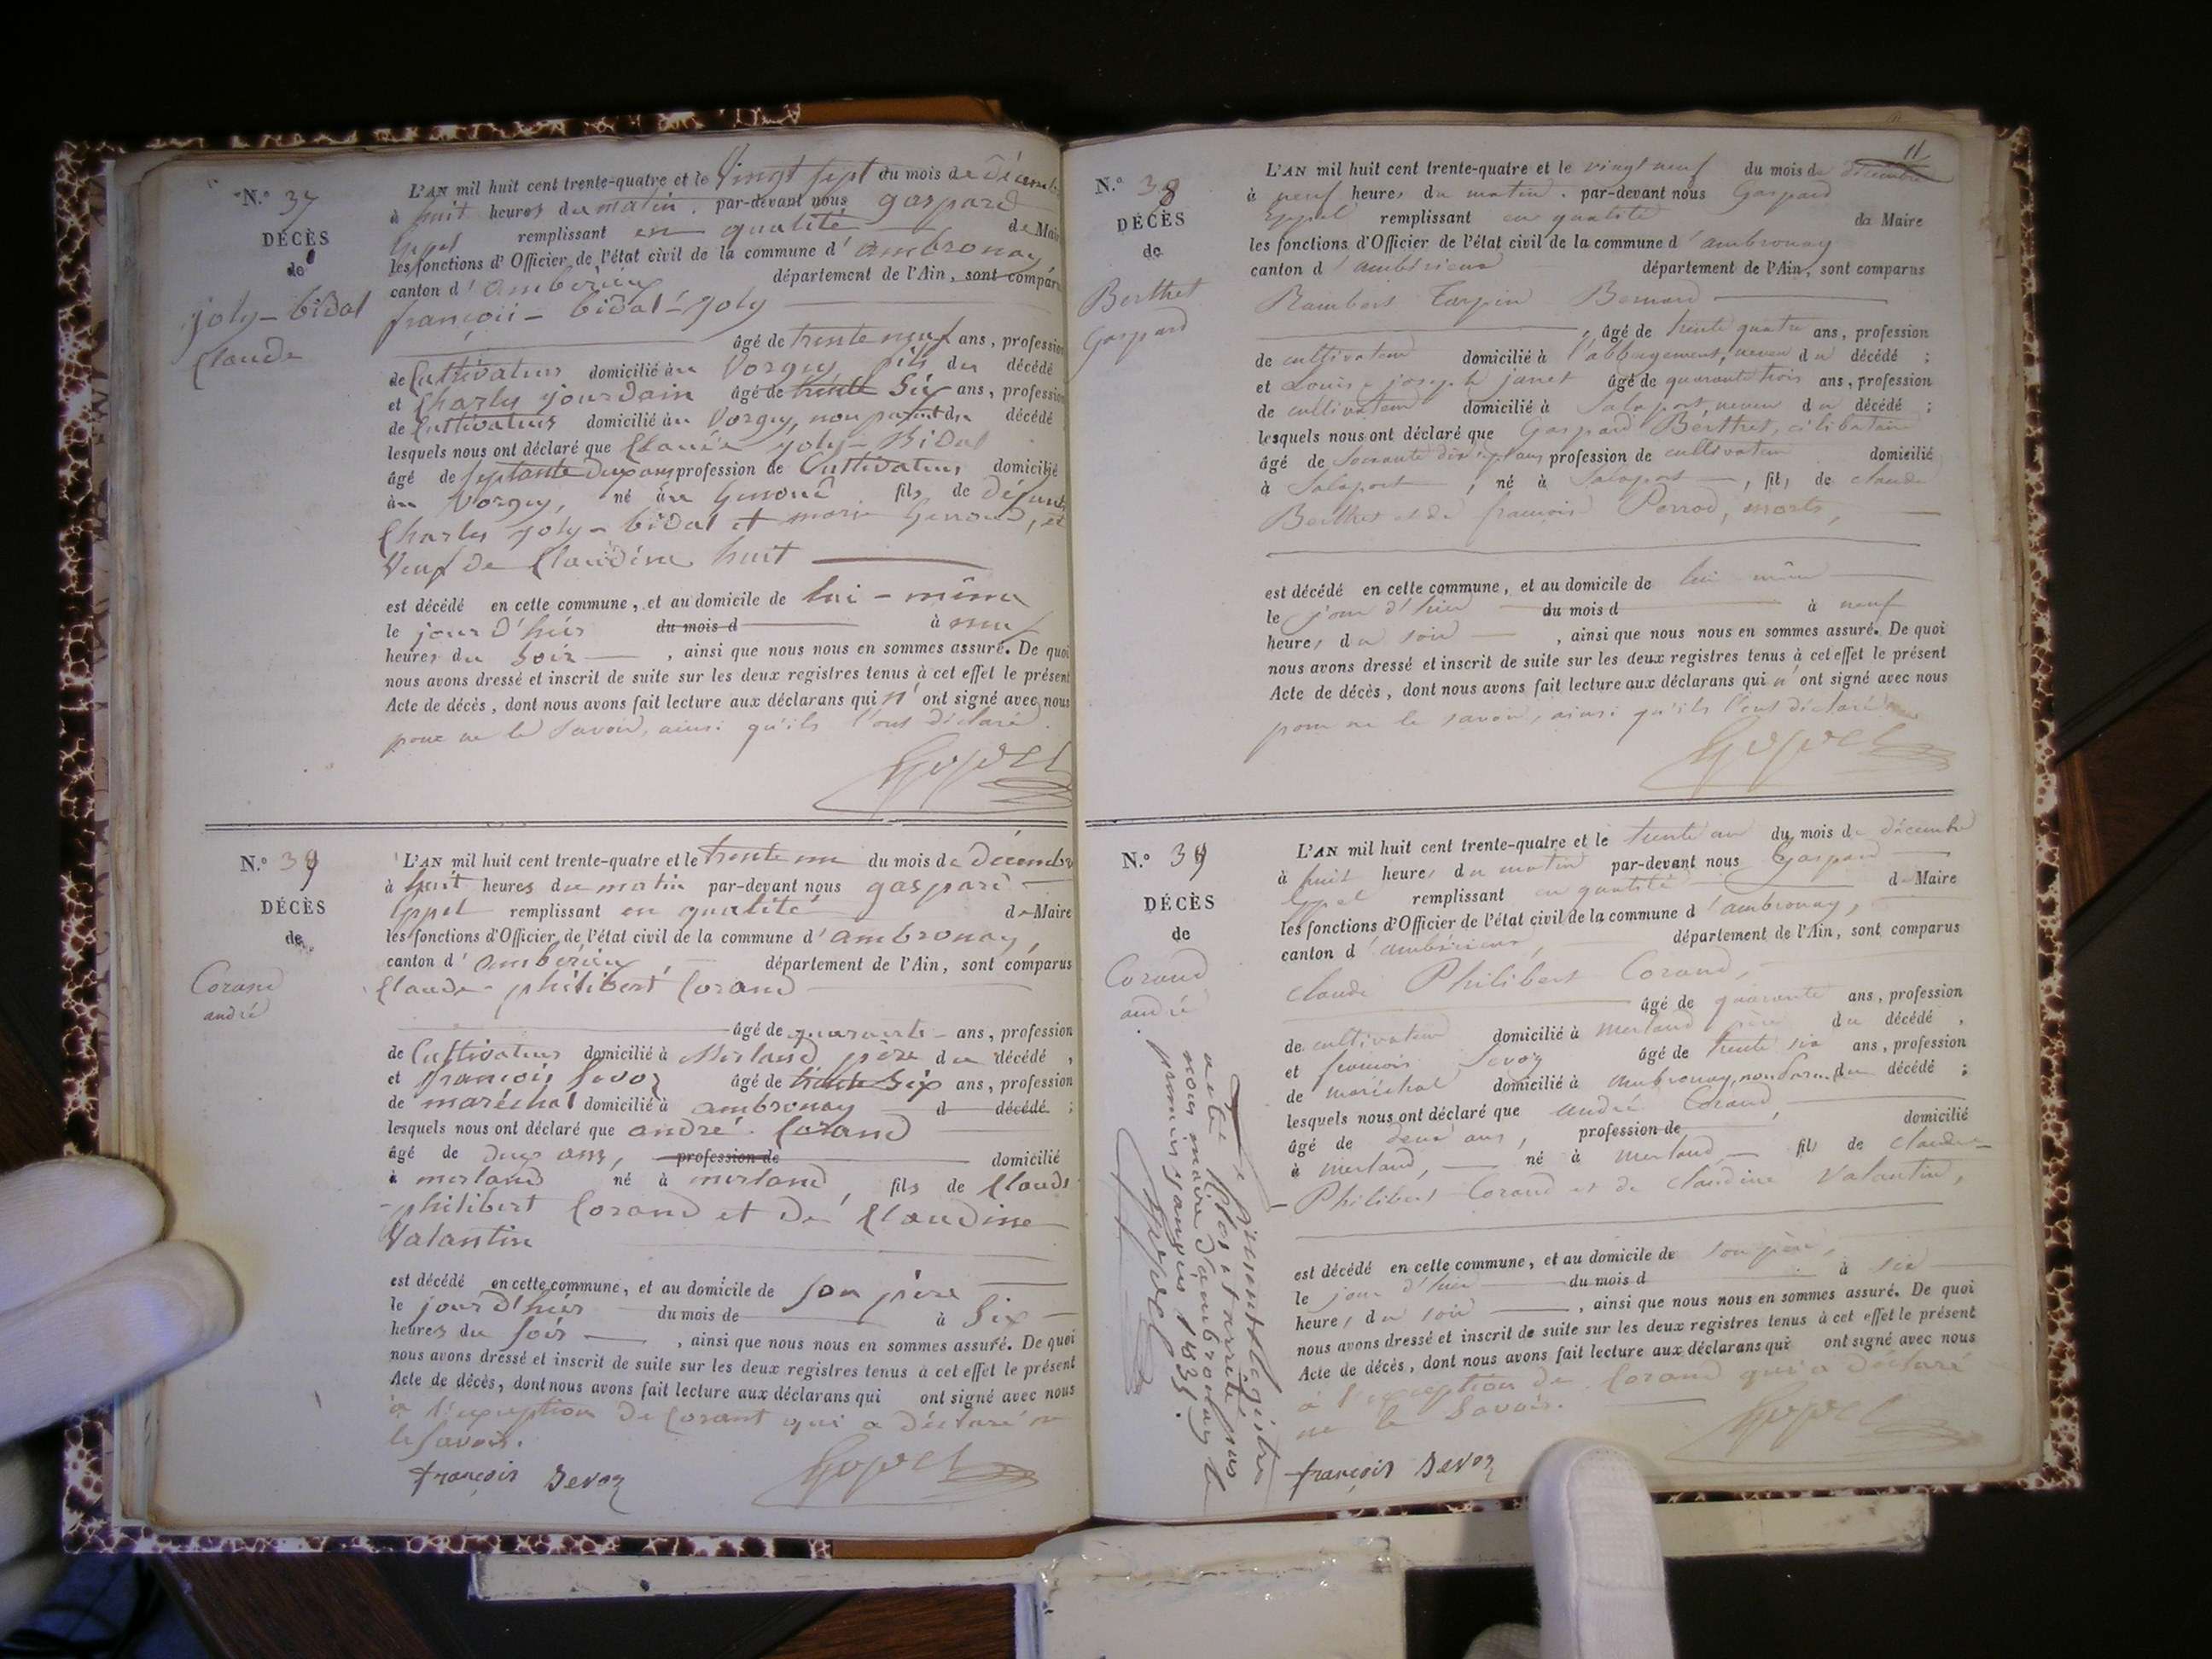 N.° 37
DÉCÈS
de
joly-bidal
Claude
L'AN mil huit cent trente-quatre et le Vingt sept du mois de Décemb
à huit heures du matin, par-devant nous gaspard
Eppel remplissant en qualité de Mai
les fonctions d'Officier de l'état civil de la commune d'ambronay
canton d'amberieu département de l'Ain, sont compar
françois - bidal-joly
âgé de trente neuf ans, profession
de Cultivateur domicilié au Vorgey fils du décédé
et Charly jourdain âgé de trente Six ans, profession
de Cultivateur domicilié au Vorgey, non parent du décédé
lesquels nous ont déclaré que Claude joly-Bidal
âgé de septante Deux ans profession de Cultivateur domicilié
au Vorgey, né au Genoud fils de Défunt
Charly joly-bidal et marie Genoud, et
Veuf de Claudine huit
est décédé en cette commune, et au domicile de lui-même
le jour D'hier du mois d à neuf
heures du Soir, ainsi que nous nous en sommes assuré. De quoi
nous avons dressé et inscrit de suite sur les deux registres tenus à cet effet le présent
Acte de décès, dont nous avons fait lecture aux déclarans qui n'ont signé avec nous
pour ne le Savoir, ainsi qu'ils l'ont déclaré.
Eppel
N.° 39
DÉCÈS
de
Corand
andré
L'AN mil huit cent trente-quatre et le trente un du mois de Décembre
à huit heures du matin par-devant nous gaspard
Eppel remplissant en qualité de Maire
les fonctions d'Officier de l'état civil de la commune d'ambronay,
canton d'amberieu département de l'Ain, sont comparus
Claude-philibert Corand
âgé de quarante ans, profession
de Cultivateur domicilié à Merland père du décédé,
et françois Sevoz âgé de trente Six ans, profession
de maréchal domicilié à ambronay d décédé;
lesquels nous ont déclaré que andré Corand
âgé de deux ans, profession de domicilié
à merland né à merland, fils de Claude
-philibert Corand et De Claudine
Valantin
est décédé en cette commune, et au domicile de Son père
le jour D'hier du mois de à Six
heures du Soir, ainsi que nous nous en sommes assuré. De quoi
nous avons dressé et inscrit de suite sur les deux registres tenus à cet effet le présent
Acte de décès, dont nous avons fait lecture aux déclarans qui ont signé avec nous
à l'exception De Corant qui a Déclaré ne
le Savoir.
françois Sevoz
Eppel
11
N.° 38
DÉCÈS
de
Berthet
Gaspard
L'AN mil huit cent trente-quatre et le vingt neuf du mois de décembre
à neuf heures du matin. par-devant nous Gaspard
Eppel remplissant en qualité de Maire
les fonctions d'Officier de l'état civil de la commune d'ambronay
canton d'ambérieux département de l'Ain, sont comparus
Rambert Turpin Bernard
, âgé de trente quatre ans, profession
de cultivateur domicilié à l'abbergement, neveu du décédé;
et Louis-joseph janet âgé de quarante trois ans, profession
de cultivateur domicilié à Salaport, neveu du décédé;
lesquels nous ont déclaré que Gaspard Berthet, célibataire
âgé de Soixante dix sept ans profession de cultivateur domicilié
à Salaport, né à Salaport, fils de claude
Berthet et de francoise Perrod, morts,
est décédé en cette commune, et au domicile de lui même
le jour d'hier du mois d à neuf
heures du soir, ainsi que nous nous en sommes assuré. De quoi
nous avons dressé et inscrit de suite sur les deux registres tenus à cet effet le présent
Acte de décès, dont nous avons fait lecture aux déclarans qui n'ont signé avec nous
pour ne le savoir, ainsi qu'ils l'ont déclaré
Eppel
N.° 39
DÉCÈS
de
Corand
andré
L'AN mil huit cent trente-quatre et le trente un du mois de décembre
à huit heures du matin par-devant nous Gaspard
Eppel remplissant en qualité de Maire
les fonctions d'Officier de l'état civil de la commune d'ambronay,
canton d'ambérieux, département de l'Ain, sont comparus
Claude Philibert Corand,
âgé de quarante ans, profession
de cultivateur domicilié à merland père du décédé,
et francois Sevoz âgé de trente six ans, profession
de maréchal domicilié à ambronay, non parent du décédé;
lesquels nous ont déclaré que andré Corand,
âgé de deux ans, profession de domicilié
à merland, né à merland fils de claude
Philibert Corand et de Claudine Valantin,
est décédé en cette commune, et au domicile de son père,
le jour d'hier du mois d à six
heures du soir, ainsi que nous nous en sommes assuré. De quoi
nous avons dressé et inscrit de suite sur les deux registres tenus à cet effet le présent
Acte de décès, dont nous avons fait lecture aux déclarans qui ont signé avec nous
à l'exception de Corand qui a Déclaré
ne le Savoir.
françois Sevoz
Eppel
Le présent Registre
a été Clos et arrêté par
nous maire d'ambronay le
premier janvier 1835.
Eppel